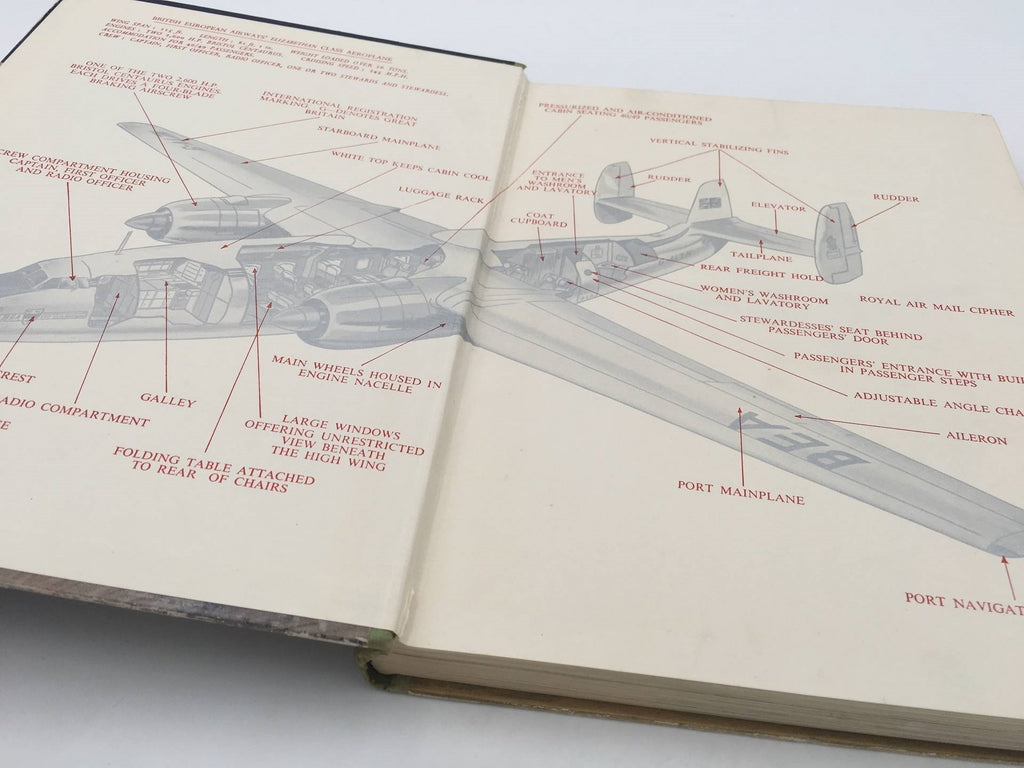 BRITISH EUROPEAN AIRWAYS' ELIZABETHAN CLASS AEROPLANE
WING SPAN: 115 ft. LENGTH: 81 ft. 2 in. WEIGHT LOADED OVER 26 TONS.
ENGINES: TWO 2,600 H.P. BRISTOL CENTAURUS. CRUISING SPEED: M.P.H.
ACCOMMODATION FOR 40/49 PASSENGERS.
CREW: CAPTAIN, FIRST OFFICER, RADIO OFFICER, ONE OR TWO STEWARDS AND STEWARDESS.
ONE OF THE TWO 2,600 H.P.
BRISTOL CENTAURUS ENGINES.
EACH DRIVES A FOUR-BLADE
BRAKING AIRSCREW
INTERNATIONAL REGISTRATION
MARKING. G-DENOTES GREAT
BRITAIN
STARBOARD MAINPLANE
WHITE TOP KEEPS CABIN COOL
LUGGAGE RACK
CREW COMPARTMENT HOUSING
CAPTAIN, FIRST OFFICER
AND RADIO OFFICER
CREST
RADIO COMPARTMENT
GALLEY
MAIN WHEELS HOUSED IN
ENGINE NACELLE
LARGE WINDOWS
OFFERING UNRESTRICTED
VIEW BENEATH
THE HIGH WING
FOLDING TABLE ATTACHED
TO REAR OF CHAIRS
PRESSURIZED AND AIR-CONDITIONED
CABIN SEATING 40/49 PASSENGERS
VERTICAL STABILIZING FINS
ENTRANCE
TO MEN'S
WASHROOM
AND LAVATORY
RUDDER
RUDDER
COAT
CUPBOARD
ELEVATOR
TAILPLANE
REAR FREIGHT HOLD
WOMEN'S WASHROOM
AND LAVATORY
ROYAL AIR MAIL CIPHER
STEWARDESSES' SEAT BEHIND
PASSENGERS' DOOR
PASSENGERS' ENTRANCE WITH BUI
IN PASSENGER STEPS
ADJUSTABLE ANGLE CHA
AILERON
BEA
PORT MAINPLANE
PORT NAVIGAT